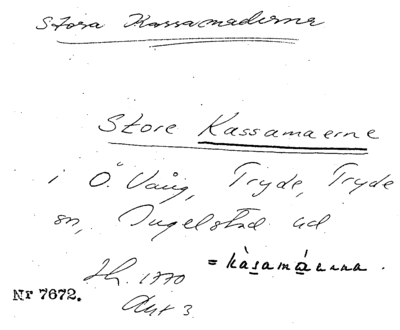 Stora Kassamaderna
Store Kassamaerne
i Ö. Vång, Tryde, Tryde
sn, Ingelstad hd
= kàsamáərna.
Sk. 1770
Nr 7672.
Akt 3